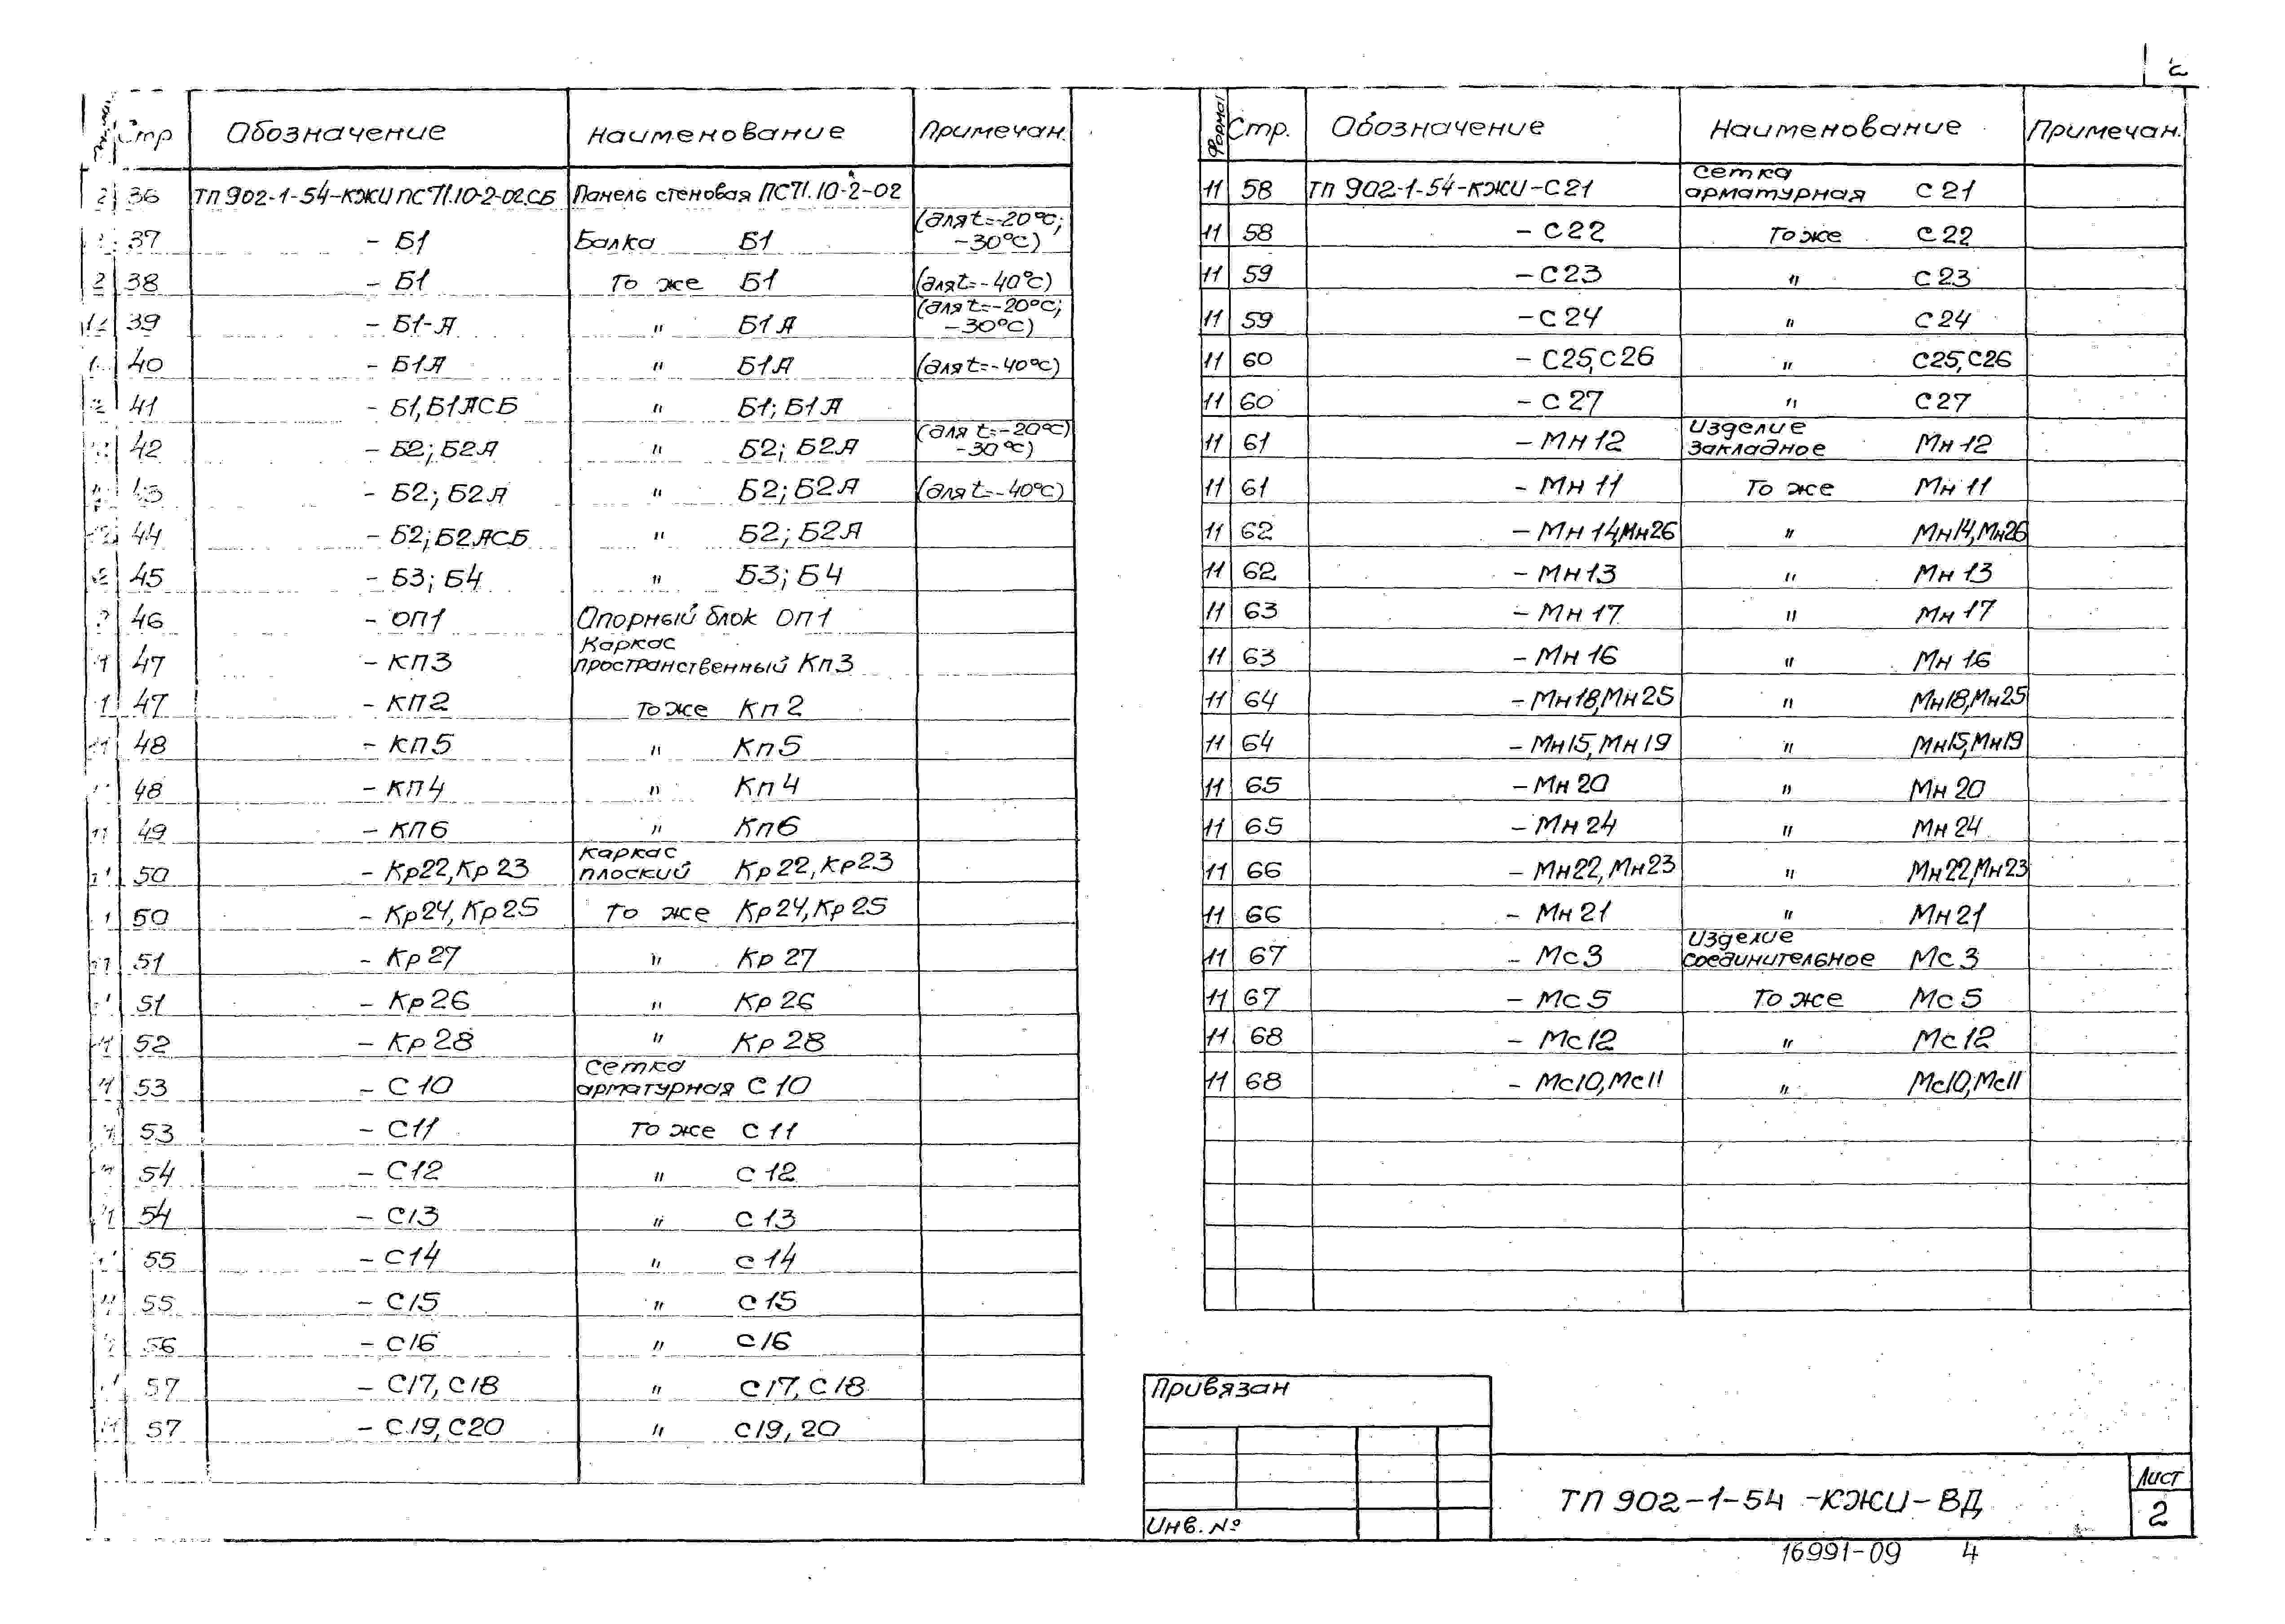 Стр Обозначение Наименование Примечан.
36 ТП 902-1-54-КЖИ ПС71.10-2-02.СБ Панель стеновая ПС71.10-2-02
37 - Б1 Балка Б1 (для t=-20°С; -30°С)
38 - Б1 То же Б1 (для t=-40°С)
39 - Б1-А " Б1А (для t=-20°С; -30°С)
40 - Б1А " Б1А (для t=-40°С)
41 - Б1,Б1АСБ " Б1; Б1А
42 - Б2; Б2А " Б2; Б2А (для t=-20°С) -30°С)
43 - Б2; Б2А " Б2; Б2А (для t=-40°С)
44 - Б2; Б2АСБ " Б2; Б2А
45 - Б3; Б4 " Б3; Б4
46 - ОП1 Опорный блок ОП1
47 - КП3 Каркас пространственный Кп3
47 - КП2 То же Кп2
48 - КП5 " Кп5
48 - КП4 " Кп4
49 - КП6 " Кп6
50 - Кр22, Кр23 Каркас плоский Кр22, Кр23
50 - Кр24, Кр25 То же Кр24, Кр25
51 - Кр27 " Кр27
51 - Кр26 " Кр26
52 - Кр28 " Кр28
53 - С10 Сетка арматурная С10
53 - С11 То же С11
54 - С12 " С12
54 - С13 " С13
55 - С14 " С14
55 - С15 " С15
56 - С16 " С16
57 - С17, С18 " С17, С18
57 - С19, С20 " С19, 20
Формат Стр. Обозначение Наименование Примечан.
11 58 ТП 902-1-54-КЖИ-С21 Сетка арматурная С21
11 58 - С22 То же С22
11 59 - С23 " С23
11 59 - С24 " С24
11 60 - С25, С26 " С25, С26
11 60 - С27 " С27
11 61 - Мн12 Изделие закладное Мн12
11 61 - Мн11 То же Мн11
11 62 - Мн14, Мн26 " Мн14, Мн26
11 62 - Мн13 " Мн13
11 63 - Мн17 " Мн17
11 63 - Мн16 " Мн16
11 64 - Мн18, Мн25 " Мн18, Мн25
11 64 - Мн15, Мн19 " Мн15, Мн19
11 65 - Мн20 " Мн20
11 65 - Мн24 " Мн24
11 66 - Мн22, Мн23 " Мн22, Мн23
11 66 - Мн21 " Мн21
11 67 - Мс3 Изделие соединительное Мс3
11 67 - Мс5 То же Мс5
11 68 - Мс12 " Мс12
11 68 - Мс10, Мс11 " Мс10, Мс11
Привязан
Инв. №
ТП 902-1-54 -КЖИ-ВД
Лист
2
16991-09 4